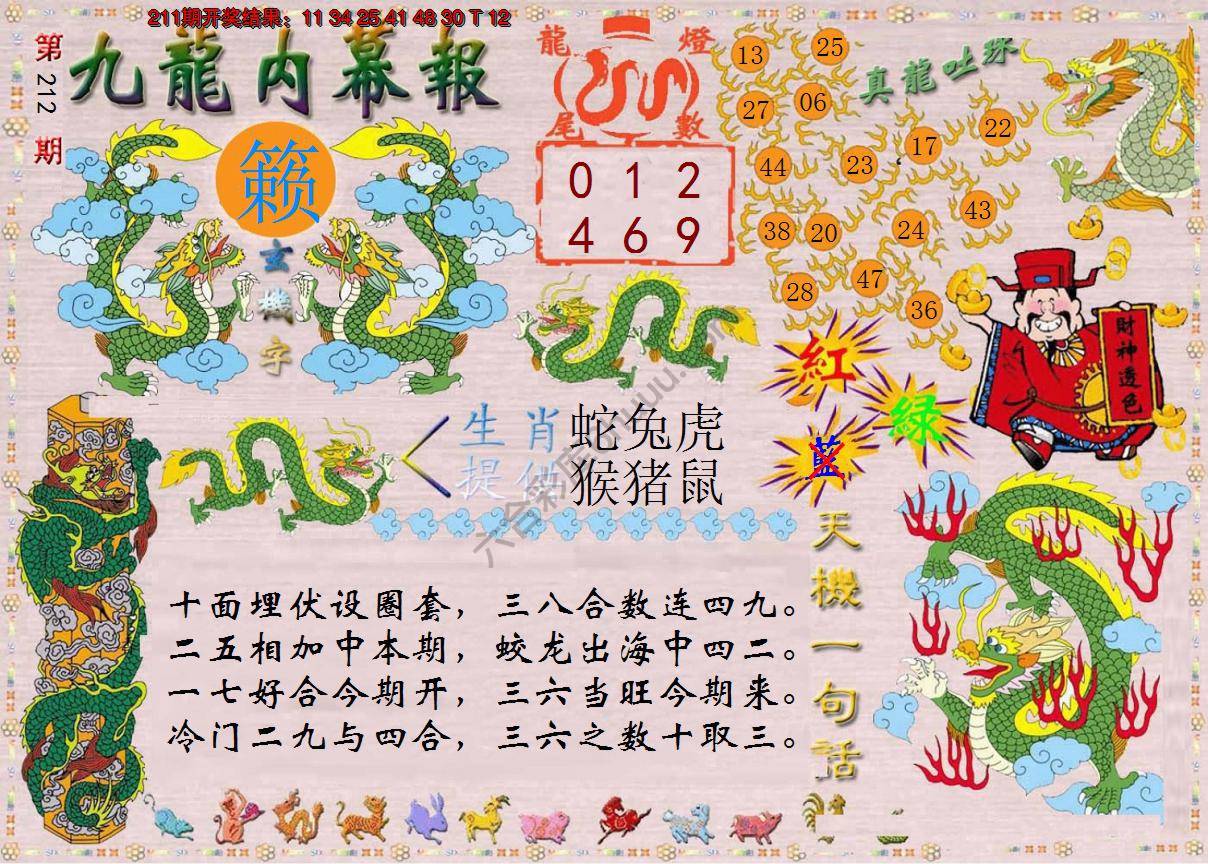 211期开奖结果：11 34 25 41 48 30 T 12
第212期
九龍内幕報
籁
玄機字
龍燈
尾數
0 1 2
4 6 9
真龍吐珠
13 25
27 06
44 23 17 22
38 20 24 43
28 47 36
財神透色
紅
綠
藍
生肖 蛇兔虎
提供 猴猪鼠
天機一句話
十面埋伏设圈套，三八合数连四九。
二五相加中本期，蛟龙出海中四二。
一七好合今期开，三六当旺今期来。
冷门二九与四合，三六之数十取三。